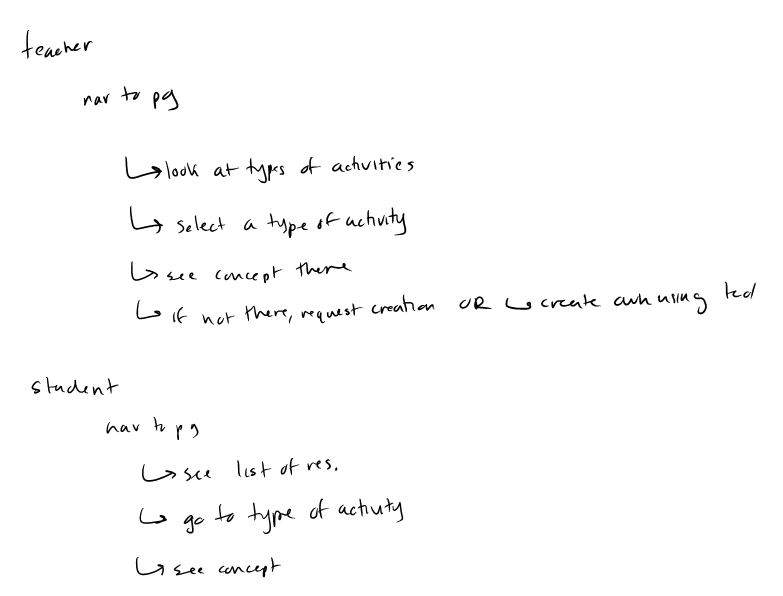 teacher
nav to pg
↳ look at types of activities
↳ select a type of activity
↳ see concept there
↳ if not there, request creation OR ↳ create using
student
nav to pg
↳ see list of res.
↳ go to type of activity
↳ see concept